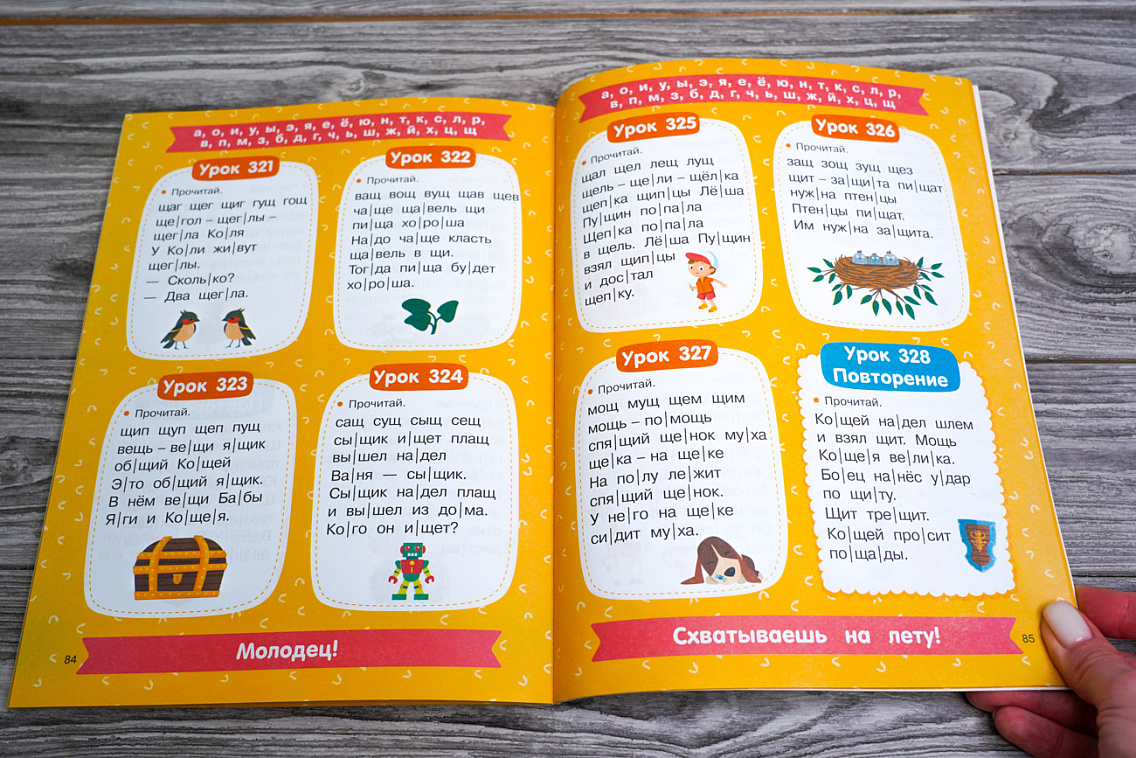 а, о, и, у, ы, э, я, е, ё, ю, н, т, к, с, л, р,
в, п, м, з, б, д, г, ч, ь, ш, ж, й, х, ц, щ
Урок 321
Прочитай.
щаг щег щиг гущ гощ
ще|гол – щег|лы –
щег|ла Ко|ля
У Ко|ли жи|вут
щег|лы.
— Сколь|ко?
— Два щег|ла.
Урок 322
Прочитай.
ващ вощ вущ щав щев
ча|ще ща|вель щи
пи|ща хо|ро|ша
На|до ча|ще класть
ща|вель в щи.
Тог|да пи|ща бу|дет
хо|ро|ша.
Урок 323
Прочитай.
щип щуп щеп пущ
вещь – ве|щи я|щик
об|щий Ко|щей
Э|то об|щий я|щик.
В нём ве|щи Ба|бы
Я|ги и Ко|ще|я.
Урок 324
Прочитай.
сащ сущ сыщ сещ
сы|щик и|щет плащ
вы|шел на|дел
Ва|ня — сы|щик.
Сы|щик на|дел плащ
и вы|шел из до|ма.
Ко|го он и|щет?
84
Молодец!
а, о, и, у, ы, э, я, е, ё, ю, н, т, к, с, л, р,
в, п, м, з, б, д, г, ч, ь, ш, ж, й, х, ц, щ
Урок 325
Прочитай.
щал щел лещ лущ
щель – ще|ли – щёл|ка
щеп|ка щип|цы Лё|ша
Пу|щин по|па|ла
Щеп|ка по|па|ла
в щель. Лё|ша Пу|щин
взял щип|цы
и дос|тал
щеп|ку.
Урок 326
Прочитай.
защ зощ зущ щез
щит – за|щи|та пи|щат
нуж|на птен|цы
Птен|цы пи|щат.
Им нуж|на за|щита.
Урок 327
Прочитай.
мощ мущ щем щим
мощь – по|мощь
спя|щий ще|нок му|ха
ще|ка – на ще|ке
На по|лу ле|жит
спя|щий ще|нок.
У не|го на ще|ке
си|дит му|ха.
Урок 328
Повторение
Прочитай.
Ко|щей на|дел шлем
и взял щит. Мощь
Ко|ще|я ве|ли|ка.
Бо|ец на|нёс у|дар
по щи|ту.
Щит тре|щит.
Ко|щей про|сит
по|ща|ды.
Схватываешь на лету!
85